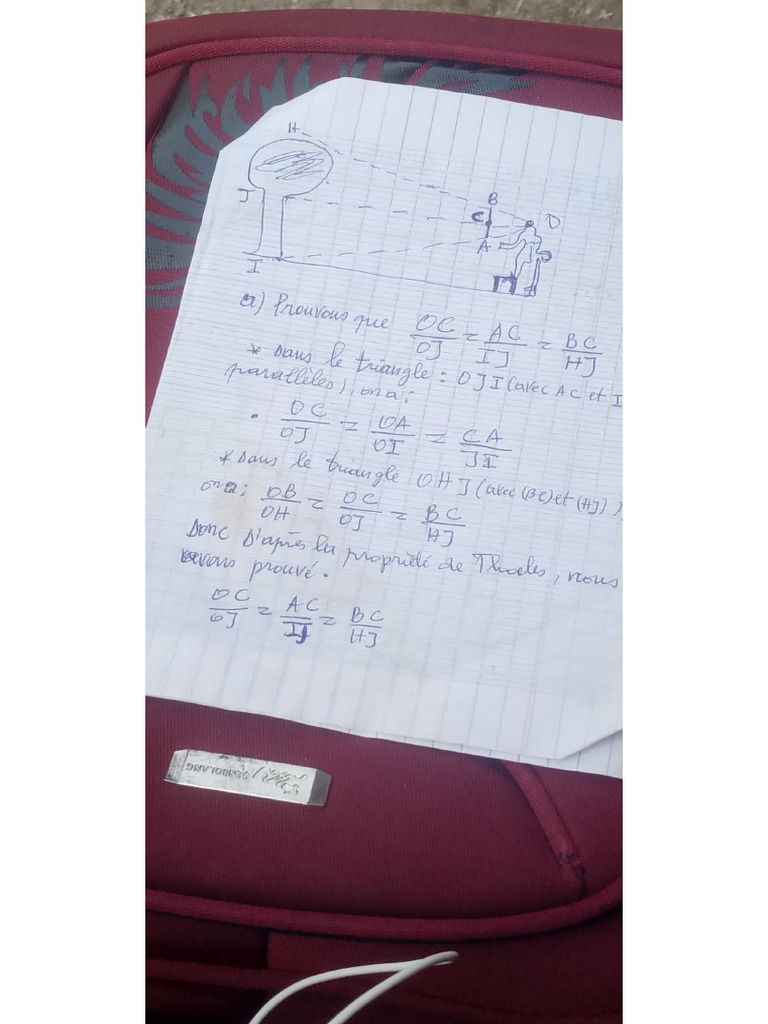 H
B
J
C
O
A
I
a) Prouvons que OC/OJ = AC/IJ = BC/HJ
* Dans le triangle : OJI (avec AC et I
parallèles), on a :
• OC/OJ = OA/OI = CA/JI
* Dans le triangle OHJ (avec (BC) et (HJ))
on a : OB/OH = OC/OJ = BC/HJ
Donc D'après la propriété de Thales, nous
avons prouvé.
OC/OJ = AC/IJ = BC/HJ